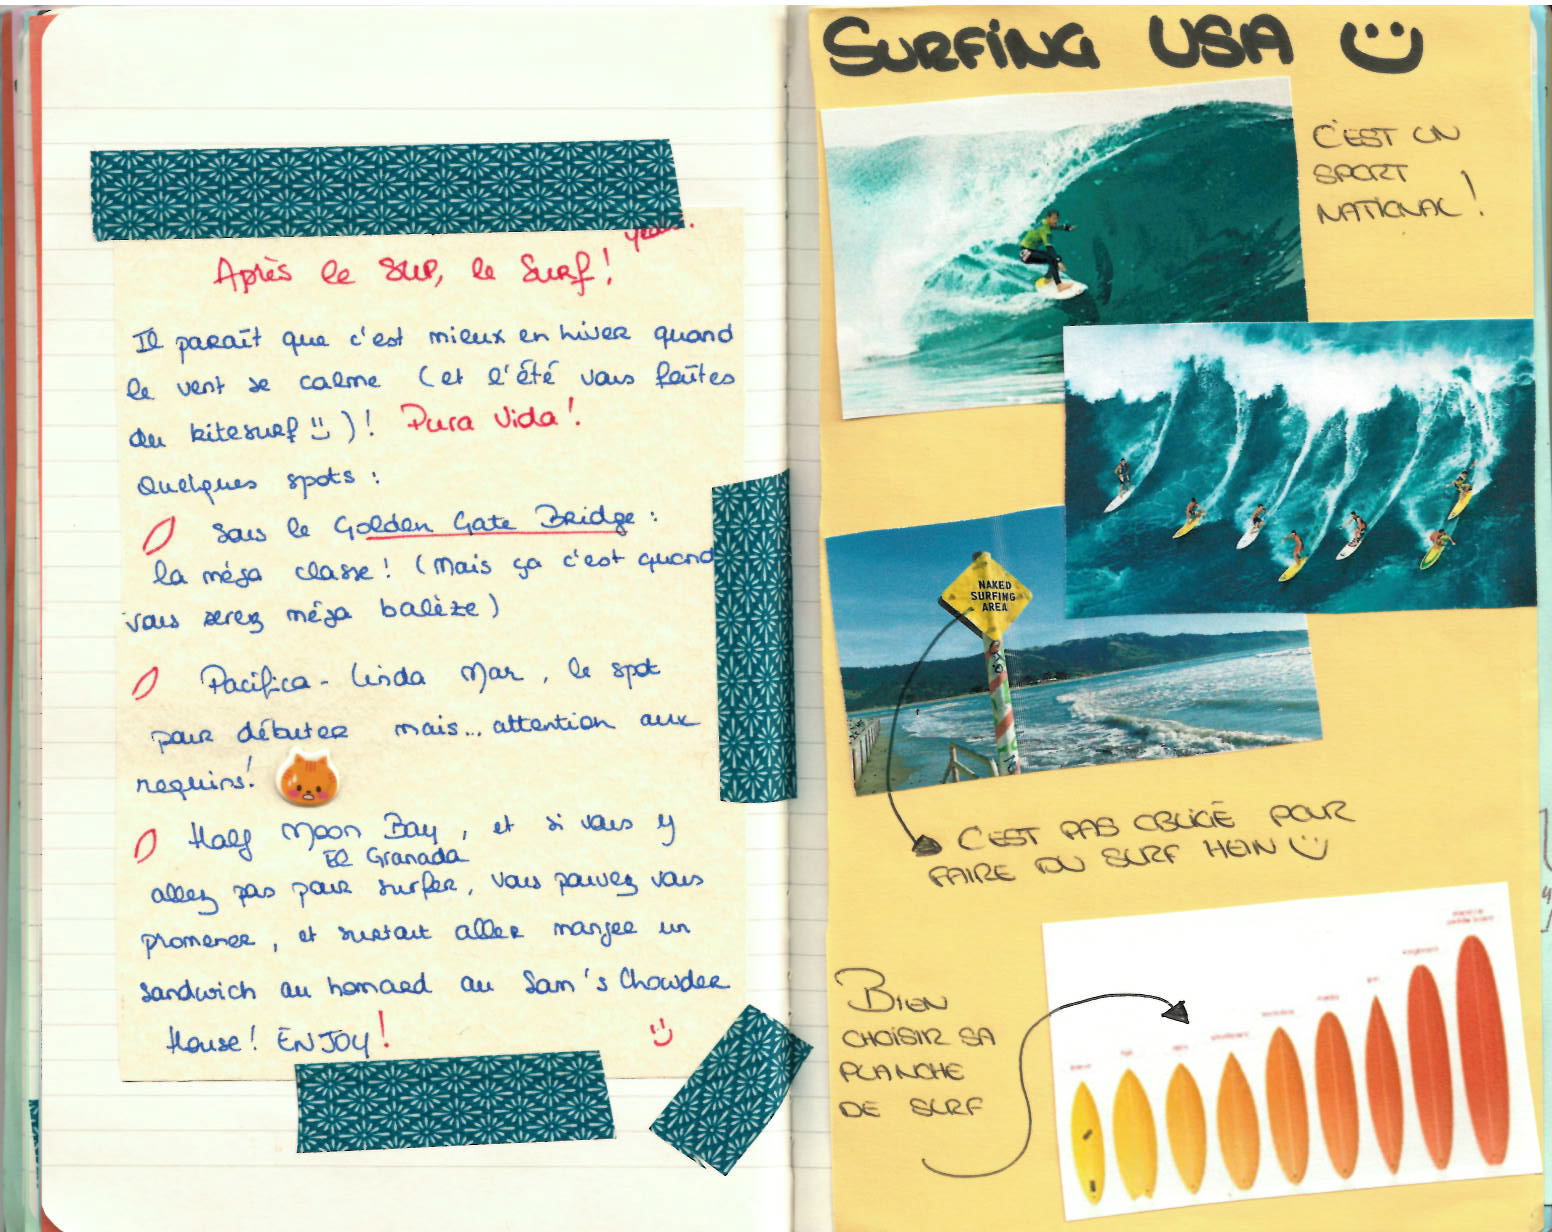 Après le SUP, le Surf! yeah!
Il paraît que c'est mieux en hiver quand
le vent se calme (et l'été vous faîtes
du kitesurf Ü)! Pura Vida!
Quelques spots :
Sous le Golden Gate Bridge :
la méga classe! (Mais ça c'est quand
vous serez méga balèze)
Pacifica - Linda Mar, le spot
pour débuter mais... attention aux
requins!
Half Moon Bay, et si vous y
El Granada
allez pas pour surfer, vous pouvez vous
promener, et surtout aller manger un
sandwich au homard au Sam's Chowder
House! ENJOY!
SURFING USA
C'EST UN
SPORT
NATIONAL!
NAKED
SURFING
AREA
C'EST PAS OBLIGÉ POUR
FAIRE DU SURF HEIN
BIEN
CHOISIR SA
PLANCHE
DE SURF